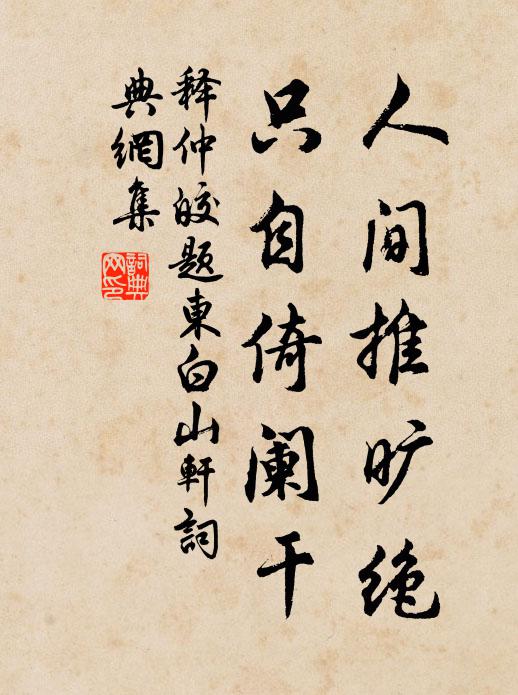 人间推旷绝
只自倚阑干
释仲皎题東白山軒詞
典網集
詞典网印